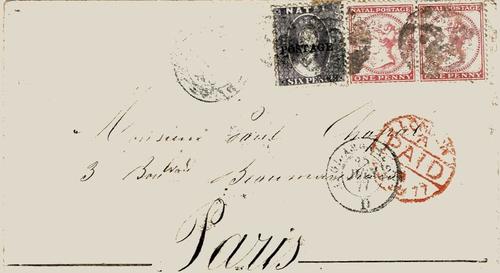 NATAL
POSTAGE
SIX PENCE
NATAL POSTAGE
ONE PENNY
NATAL POSTAGE
ONE PENNY
Monsieur Paul
3 Boulvard
Beaumarchais
Paris
LONDON
PAID
77
77
D